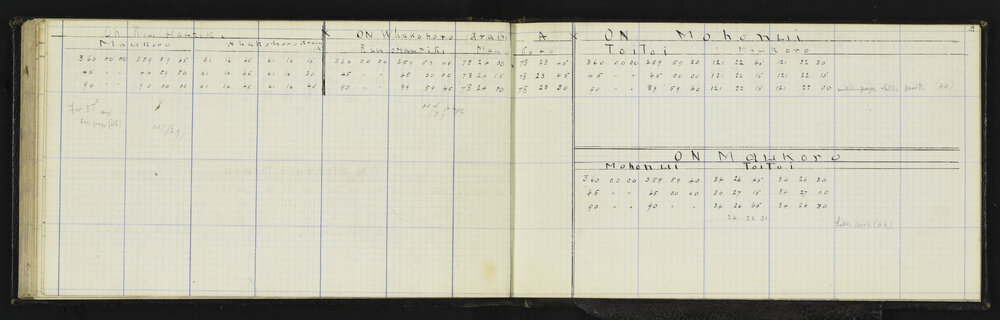 On Rini Hauriki
Maukoro Whakohoro drain
360 00 00 359 59 45 61 16 45 61 16 15
45 " " 44 59 30 61 16 45 61 16 30
90 " " 90 00 00 61 16 45 61 16 45
for 2nd
see page
X ON Whakohoro drain A X
Rini Hauriki Mau Koro
360 00 00 359 59 45 78 24 00 78 23 45
45 " " 45 00 00 78 24 15 78 23 45
90 " " 89 59 45 78 24 00 78 23 30
page
9
ON Mohonui
Toi Toi Maukoro
360 00 00 359 59 20 121 22 45 121 22 30
45 " " 45 00 00 121 22 15 121 22 15
90 " " 89 59 40 121 22 15 121 22 00 page little work (44)
ON Maukoro
Mohonui Toi Toi
360 00 00 359 59 40 34 26 45 34 26 30
45 " " 45 00 00 34 27 15 34 27 00
90 " " 90 " " 34 26 45 34 26 30
34 26 51